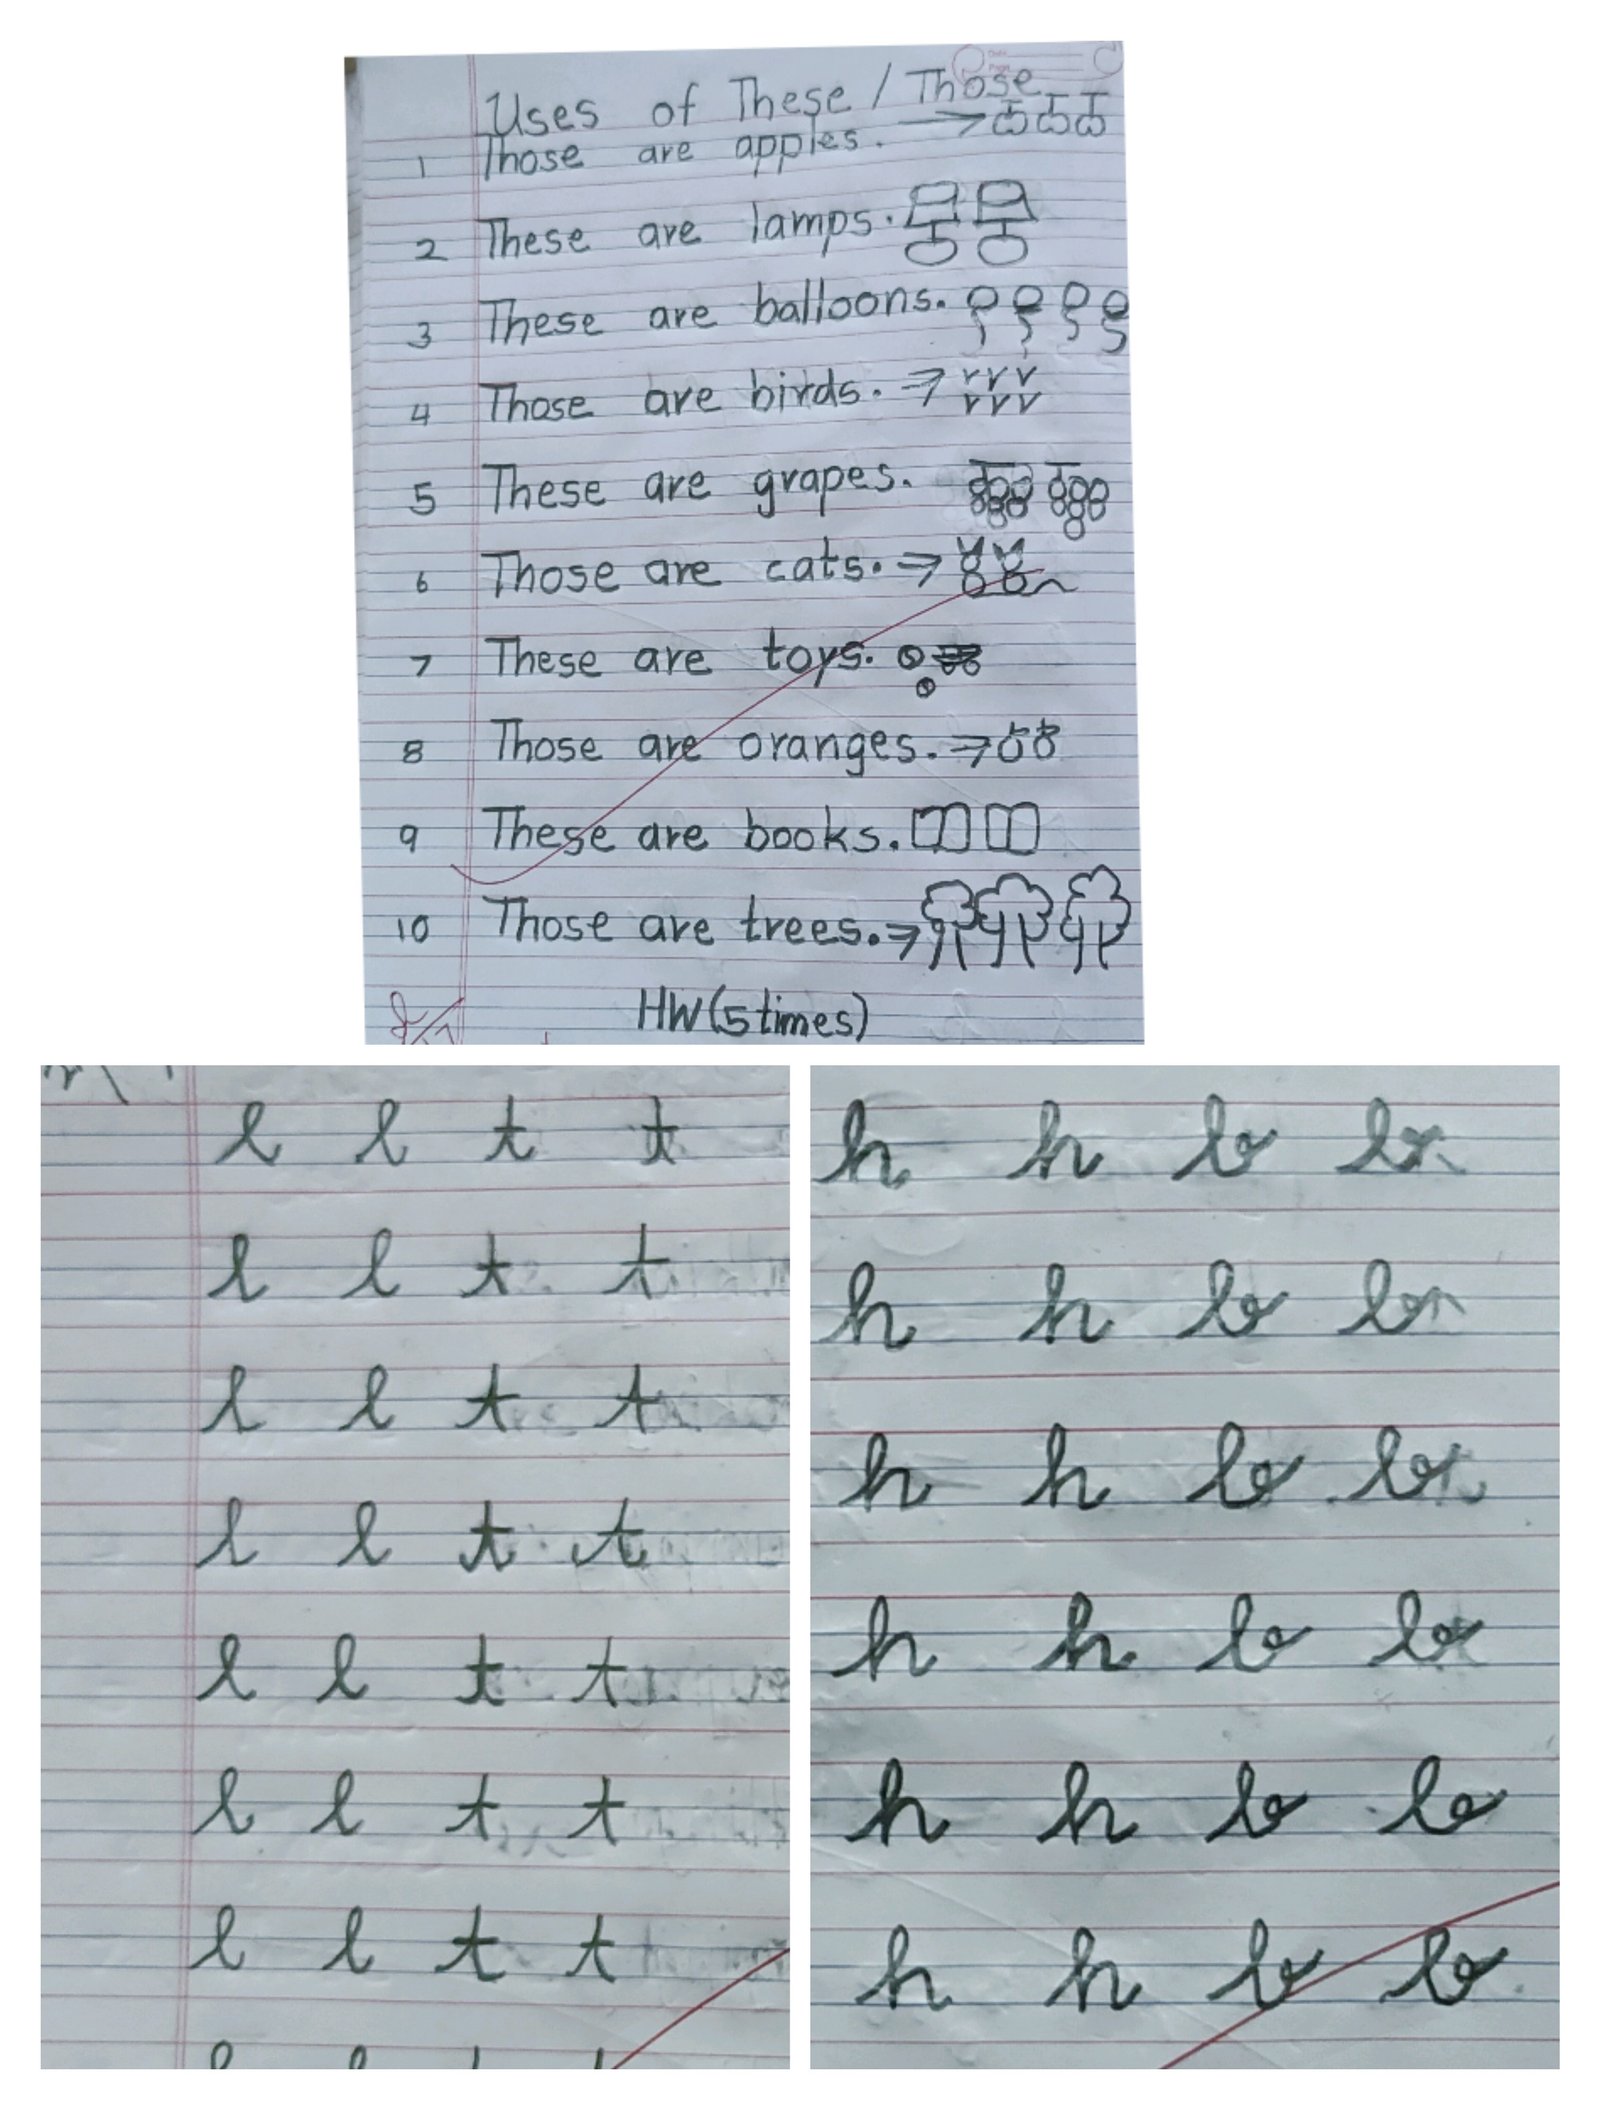 Uses of These / Those
1 Those are apples.
2 These are lamps.
3 These are balloons.
4 Those are birds.
5 These are grapes.
6 Those are cats.
7 These are toys.
8 Those are oranges.
9 These are books.
10 Those are trees.
HW (5 times)
l l t t
l l t t
l l t t
l l t t
l l t t
l l t t
l l t t
h h b b
h h b b
h h b b
h h b b
h h b b
h h b b